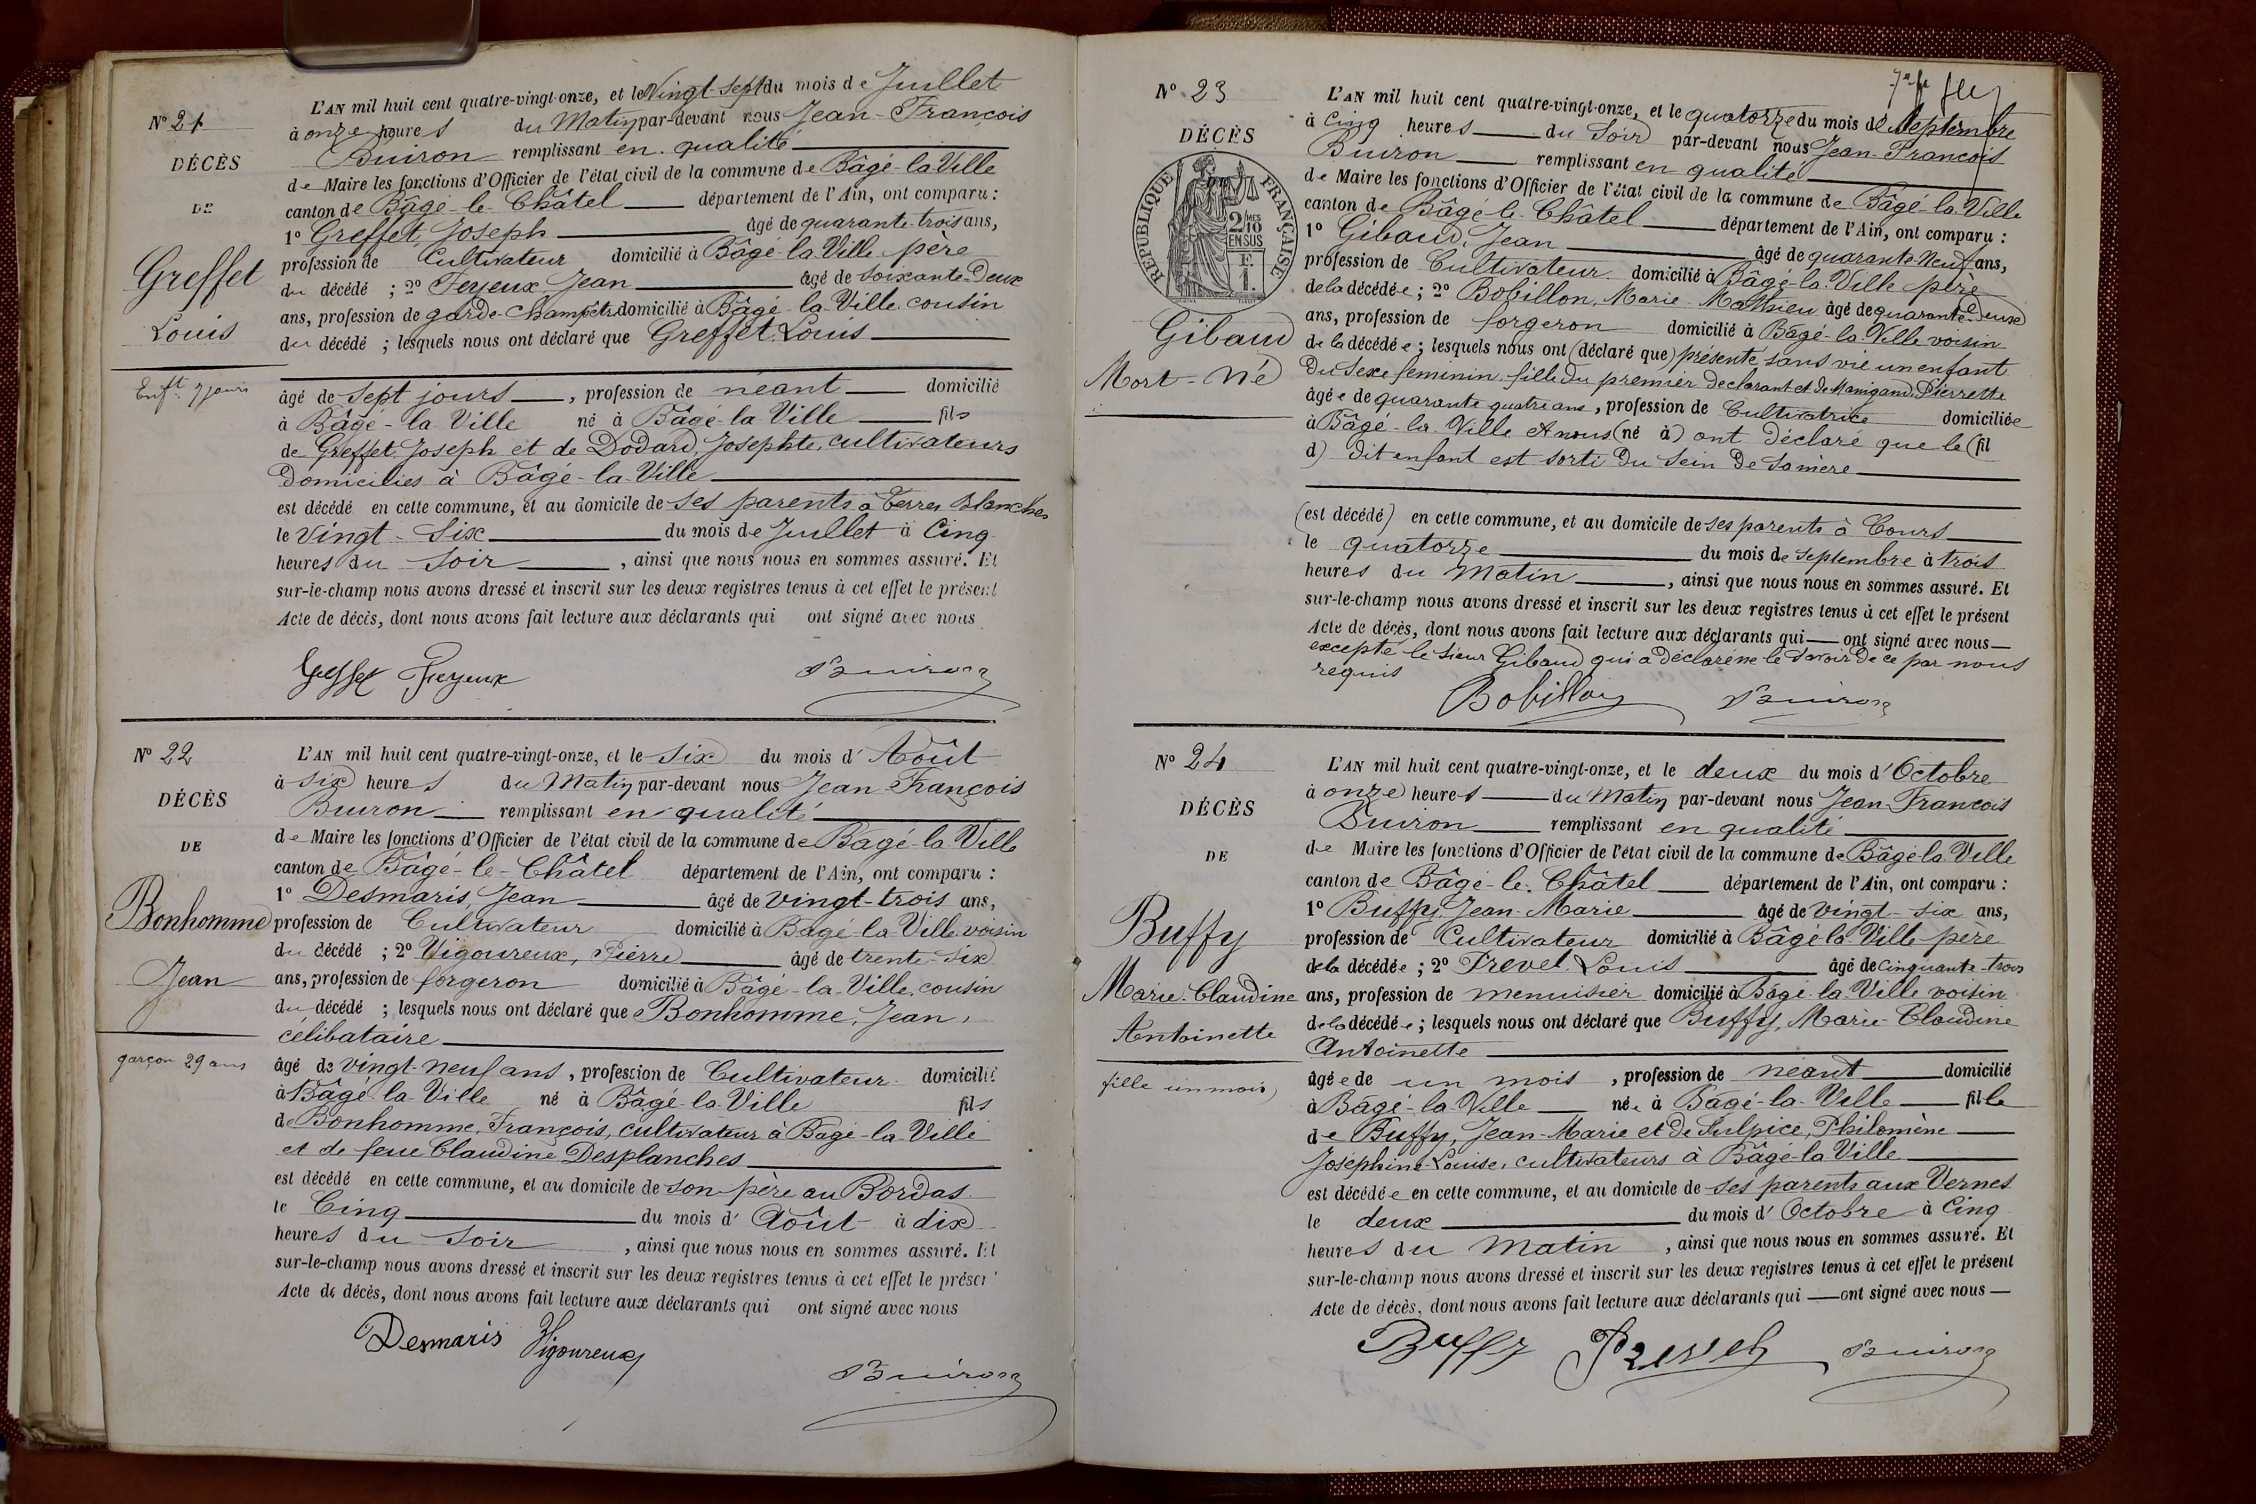 N° 21
DÉCÈS
DE
Greffet
Louis
Enft 7 jours
L'AN mil huit cent quatre-vingt-onze, et le Vingt-Sept du mois de Juillet
à onze heures du Matin par-devant nous Jean-François
Buiron remplissant en qualité
de Maire les fonctions d'Officier de l'état civil de la commune de Bâgé-la-Ville
canton de Bâgé-le-Châtel département de l'Ain, ont comparu :
1° Greffet, Joseph âgé de quarante-trois ans,
profession de Cultivateur domicilié à Bâgé-la-Ville père
du décédé ; 2° Feyeux Jean âgé de soixante-Deux
ans, profession de garde-champêtre domicilié à Bâgé-la-Ville, cousin
du décédé ; lesquels nous ont déclaré que Greffet, Louis
âgé de Sept jours, profession de néant domicilié
à Bâgé-la-Ville né à Bâgé-la-Ville fils
de Greffet, Joseph et de Dodard, Josephte, cultivateurs
Domiciliés à Bâgé-la-Ville
est décédé en cette commune, et au domicile de ses parents à Terres Blanches
le Vingt-Six du mois de Juillet à Cinq
heures du Soir, ainsi que nous nous en sommes assuré. Et
sur-le-champ nous avons dressé et inscrit sur les deux registres tenus à cet effet le présent
Acte de décès, dont nous avons fait lecture aux déclarants qui ont signé avec nous
Greffet Feyeux Buiron
N° 22
DÉCÈS
DE
Bonhomme
Jean
garçon 29 ans
L'AN mil huit cent quatre-vingt-onze, et le Six du mois d'Août
à six heures du Matin par-devant nous Jean François
Buiron remplissant en qualité
de Maire les fonctions d'Officier de l'état civil de la commune de Bâgé-la-Ville
canton de Bâgé-le-Châtel département de l'Ain, ont comparu :
1° Desmaris, Jean âgé de vingt-trois ans,
profession de Cultivateur domicilié à Bâgé-la-Ville voisin
du décédé ; 2° Vigoureux, Pierre âgé de trente-six
ans, profession de forgeron domicilié à Bâgé-la-Ville, cousin
du décédé ; lesquels nous ont déclaré que Bonhomme, Jean,
célibataire
âgé de vingt-neuf ans, profession de Cultivateur domicilié
à Bâgé-la-Ville né à Bâgé-la-Ville fils
de Bonhomme, François, cultivateur à Bagé-la-Ville
et de feue Claudine Desplanches
est décédé en cette commune, et au domicile de son père au Bordas
le Cinq du mois d'Août à dix
heures du Soir, ainsi que nous nous en sommes assuré. Et
sur-le-champ nous avons dressé et inscrit sur les deux registres tenus à cet effet le présent
Acte de décès, dont nous avons fait lecture aux déclarants qui ont signé avec nous
Desmaris Vigoureux
Buiron
N° 23
DÉCÈS
RÉPUBLIQUE FRANÇAISE
2/10 MES EN SUS
F. 1.
Gibaud
Mort-né
L'AN mil huit cent quatre-vingt-onze, et le quatorze du mois de Septembre
à Cinq heures du Soir par-devant nous Jean-François
Buiron remplissant en qualité
de Maire les fonctions d'Officier de l'état civil de la commune de Bâgé-la-Ville
canton de Bâgé-le-Châtel département de l'Ain, ont comparu :
1° Gibaud, Jean âgé de quarante-Neuf ans,
profession de Cultivateur domicilié à Bâgé-la-Ville père
de la décédée ; 2° Bobillon, Marie-Mathieu âgé de quarante-Deux
ans, profession de forgeron domicilié à Bâgé-la-Ville voisin
de la décédée ; lesquels nous ont (déclaré que) présenté sans vie un enfant
Du Sexe feminin fille Du premier declarant et de Manigand, Pierrette
âgée de quarante quatre ans, profession de Cultivatrice domiciliée
à Bâgé-la-Ville et nous (né à) ont déclaré que le (fil
d) Dit enfant est sorti Du Sein De Sa mère
(est décédé) en cette commune, et au domicile de ses parents à Cours
le quatorze du mois de septembre à trois
heures du Matin, ainsi que nous nous en sommes assuré. Et
sur-le-champ nous avons dressé et inscrit sur les deux registres tenus à cet effet le présent
Acte de décès, dont nous avons fait lecture aux déclarants qui ont signé avec nous
excepté le Sieur Gibaud qui a déclaré ne le Savoir De ce par nous
requis
Bobillon Buiron
N° 24
DÉCÈS
DE
Buffy
Marie-Claudine
Antoinette
fille un mois
L'AN mil huit cent quatre-vingt-onze, et le deux du mois d'Octobre
à onze heures du Matin par-devant nous Jean-François
Buiron remplissant en qualité
de Maire les fonctions d'Officier de l'état civil de la commune de Bâgé-la-Ville
canton de Bâgé-le-Châtel département de l'Ain, ont comparu :
1° Buffy, Jean-Marie âgé de vingt-six ans,
profession de Cultivateur domicilié à Bâgé-la-Ville père
de la décédée ; 2° Prevel Louis âgé de cinquante-trois
ans, profession de menuisier domicilié à Bâgé-la-Ville voisin
de la décédée ; lesquels nous ont déclaré que Buffy, Marie-Claudine
Antoinette
âgée de un mois, profession de néant domicilié
à Bâgé-la-Ville née à Bâgé-la-Ville fille
de Buffy, Jean-Marie et de Sulpice, Philomène
Joséphine-Louise, cultivateurs à Bâgé-la-Ville
est décédée en cette commune, et au domicile de ses parents aux Vernes
le deux du mois d'Octobre à Cinq
heures du Matin, ainsi que nous nous en sommes assuré. Et
sur-le-champ nous avons dressé et inscrit sur les deux registres tenus à cet effet le présent
Acte de décès, dont nous avons fait lecture aux déclarants qui ont signé avec nous
Buffy Prevel Buiron